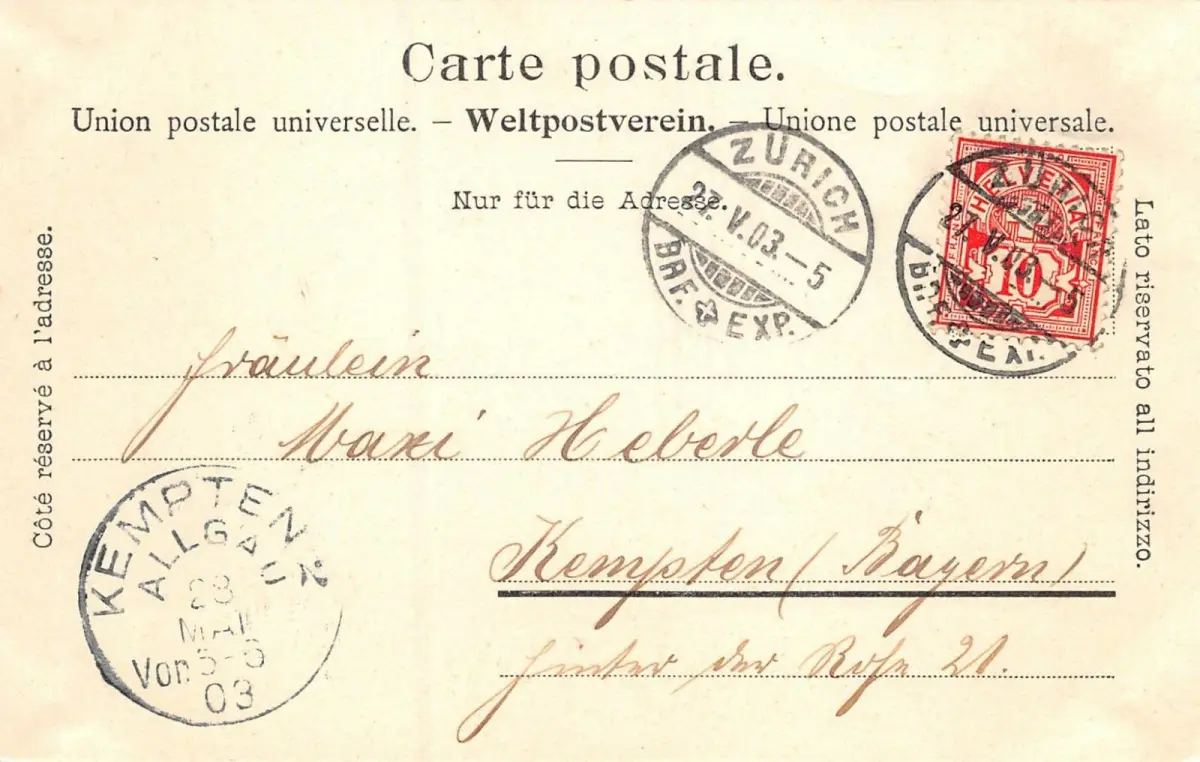 Carte postale.
Union postale universelle. – Weltpostverein. – Unione postale universale.
Nur für die Adresse.
Côté réservé à l'adresse.
Lato riservato all indirizzo.
ZÜRICH
27.V.03.–5
BRF. EXP.
HELVETIA
10
ZÜRICH
27.V.03.–5
BRF. EXP.
Fräulein
Maxi Heberle
Kempten (Bayern)
hinter der 21.
KEMPTEN 2
ALLGÄU
28
MAI
Vor 5-6
03